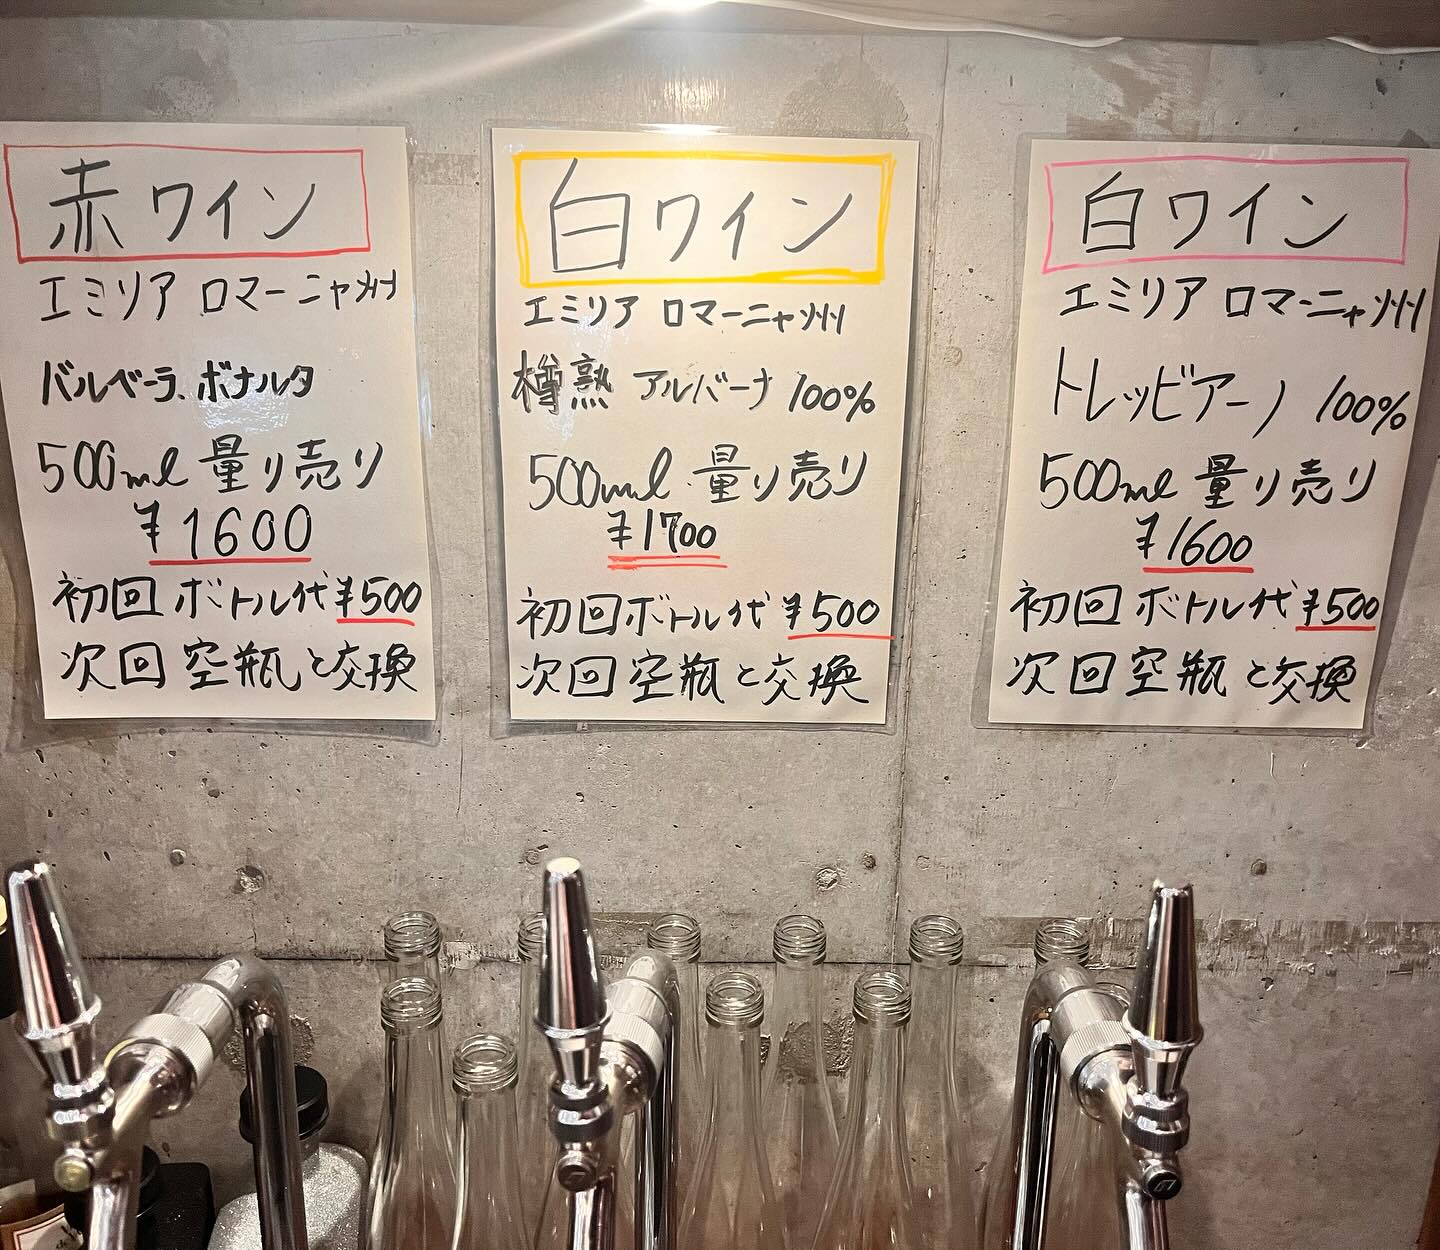 赤ワイン
エミリア ロマーニャ州
バルベーラ、ボナルダ
500ml 量り売り
¥1600
初回 ボトル代 ¥500
次回 空瓶と交換
白ワイン
エミリア ロマーニャ州
樽熟 アルバーナ 100%
500ml 量り売り
¥1700
初回 ボトル代 ¥500
次回 空瓶と交換
白ワイン
エミリア ロマーニャ州
トレッビアーノ 100%
500ml 量り売り
¥1600
初回 ボトル代 ¥500
次回 空瓶と交換